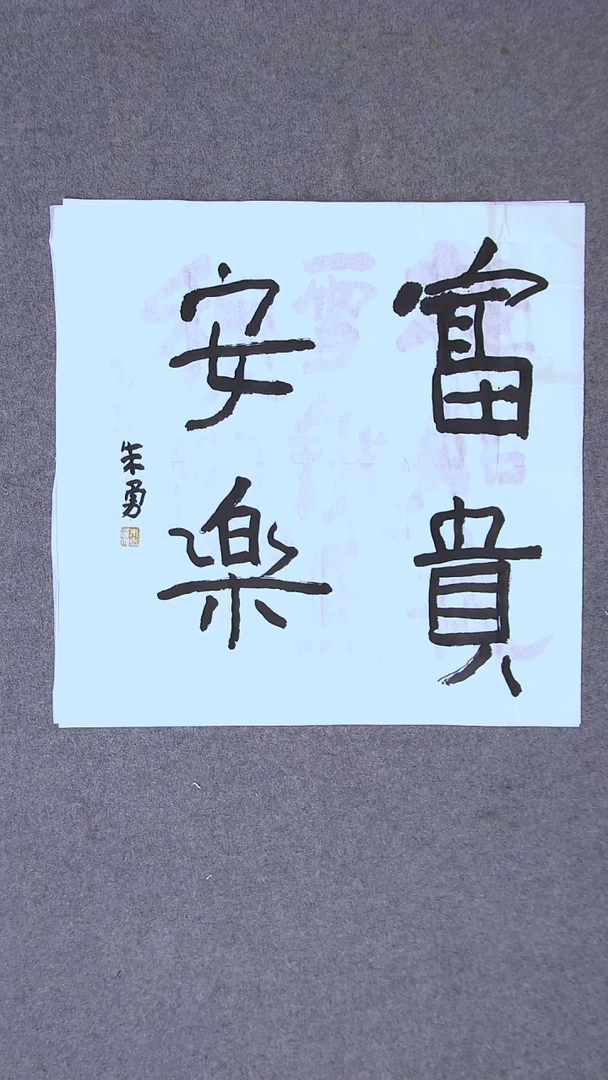 富貴
安樂
朱勇